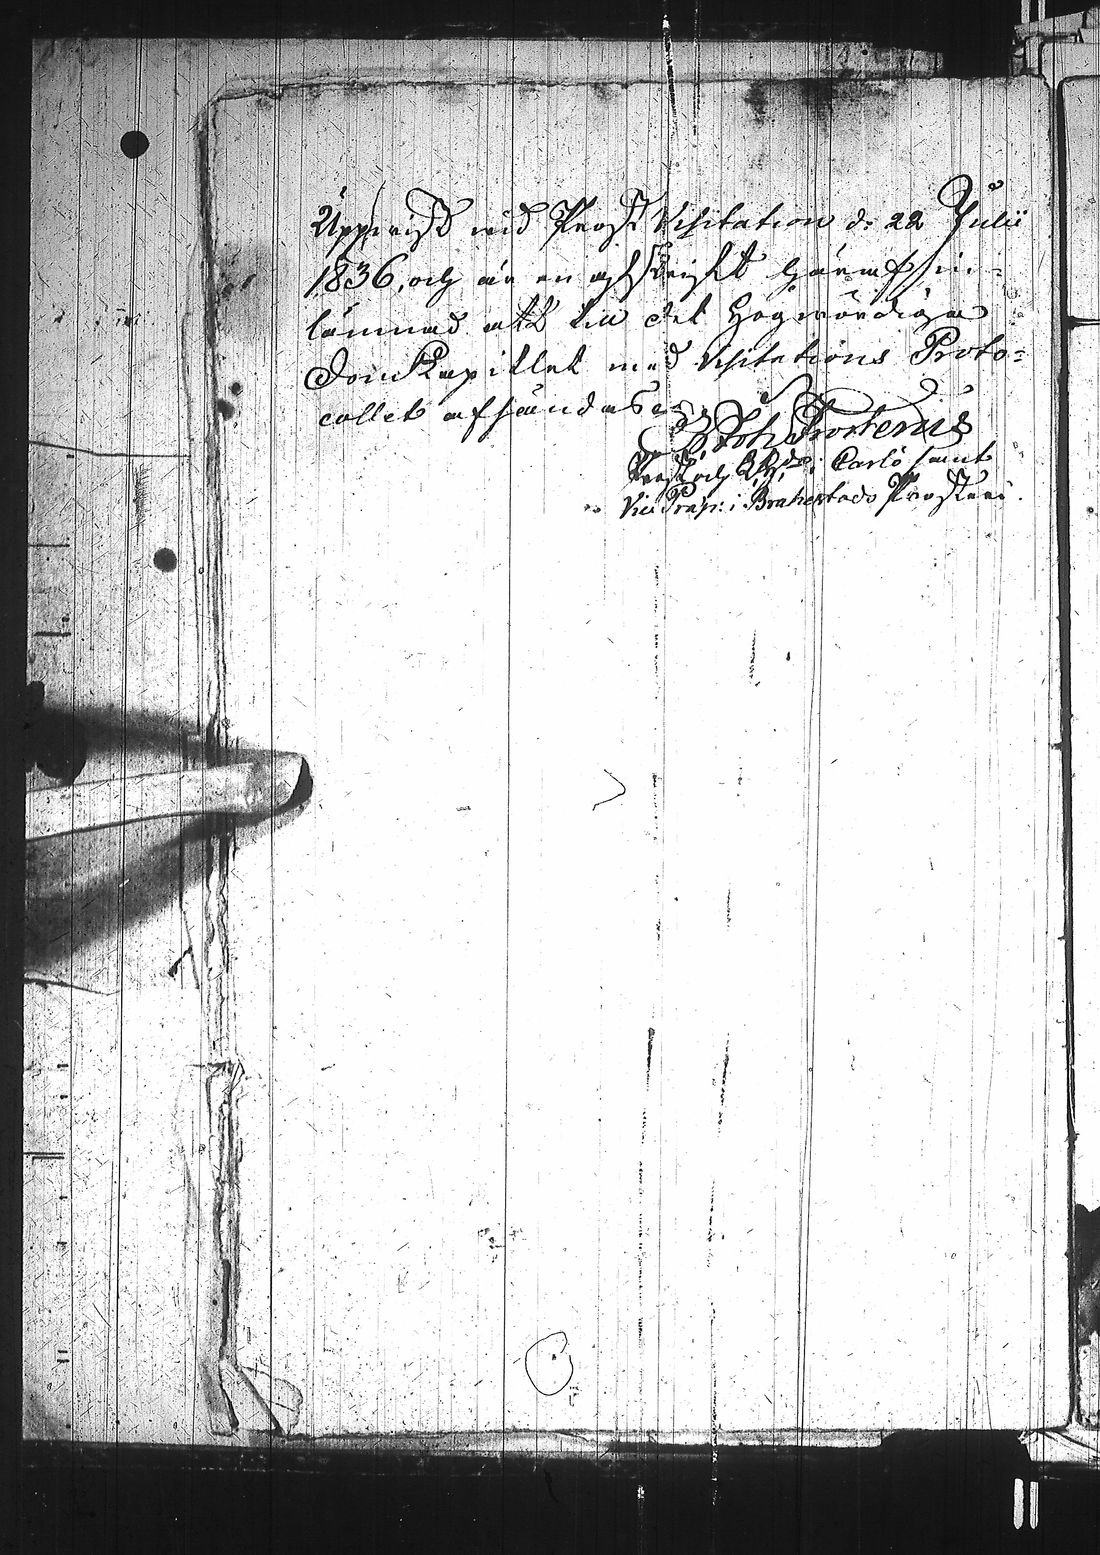 Uppvist vid Prost Visitation d: 22 Julii
1836, och är en afskrift häraf in-
lämnad att till det Högwördiga
DomKapitlet med Visitations Proto=
collet afsändas
Joh. Frosterus
Prost och K.H. i Carlö samt
Vice Præp: i Brahestads Prosteri.